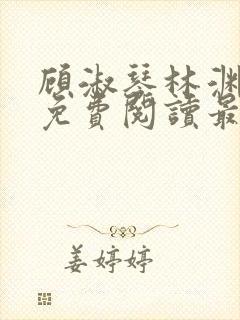 顾淑琴林渊
免費閱讀最
姜婷婷